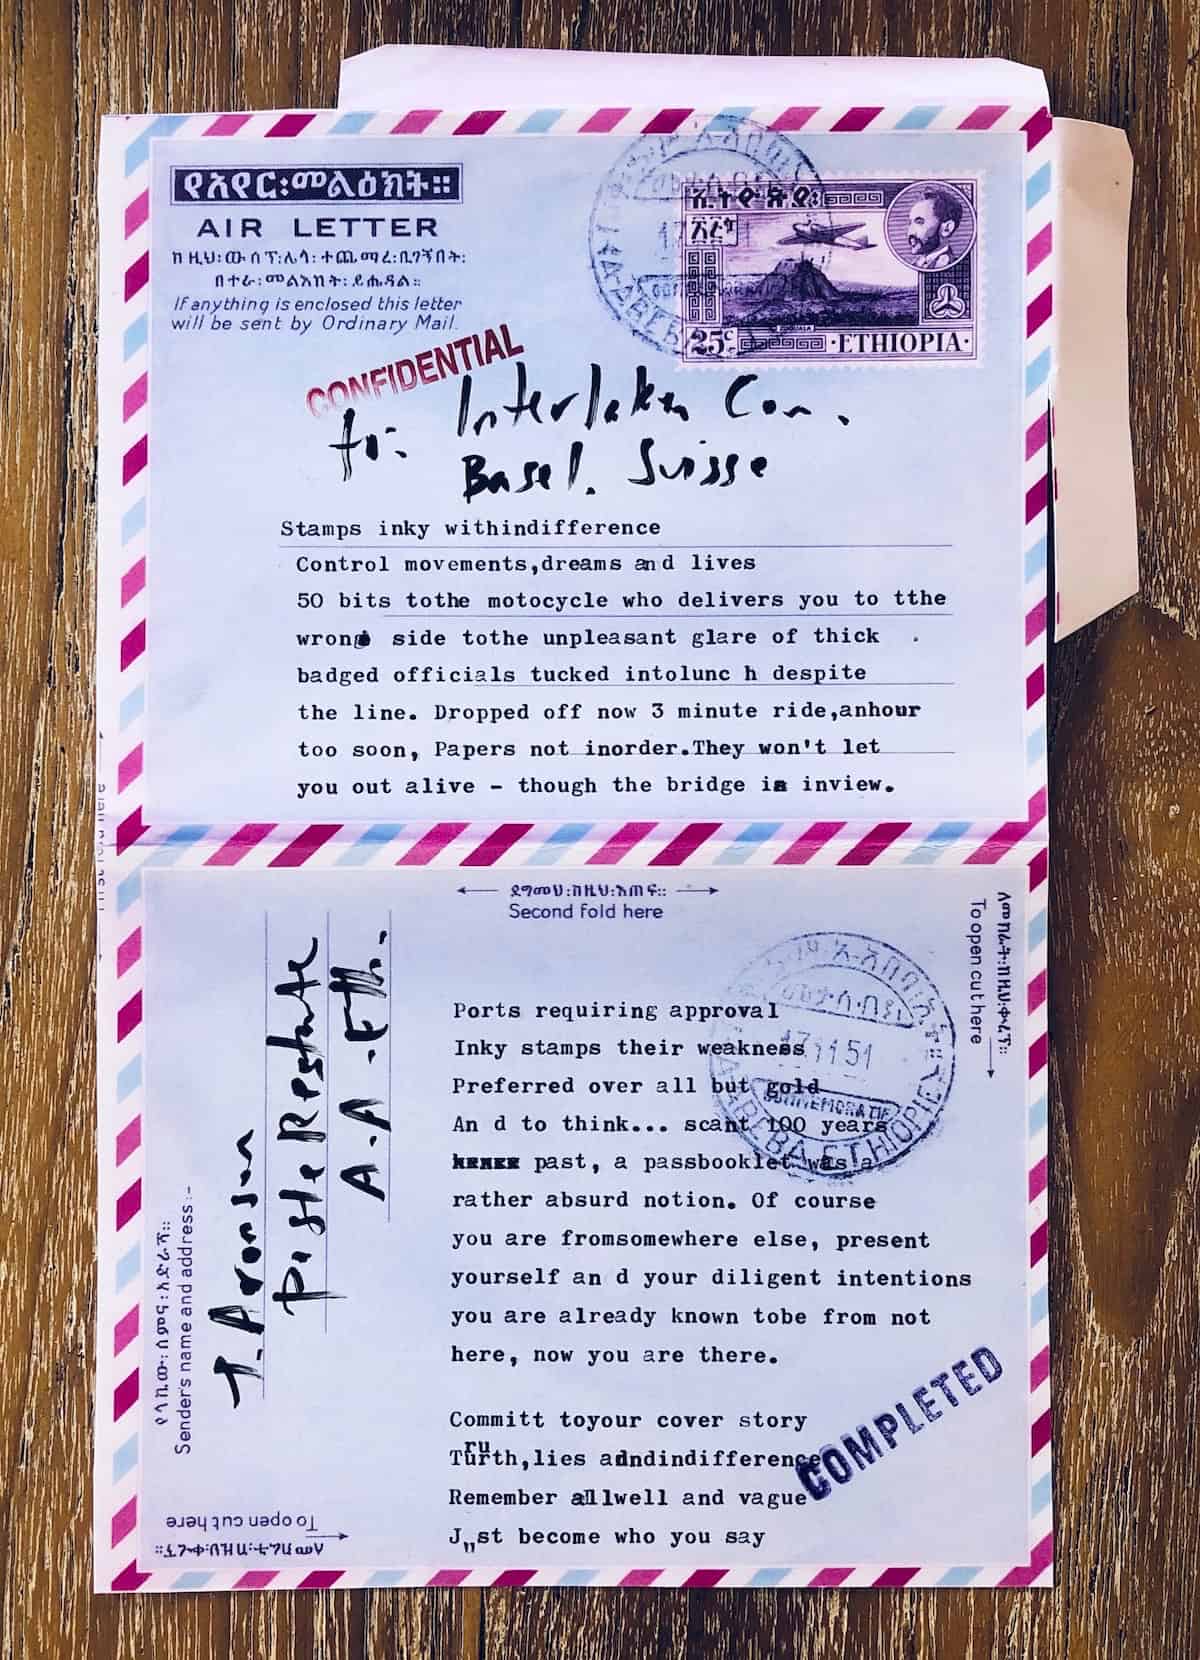 የአየር፡መልዕክት፡፡
AIR LETTER
If anything is enclosed this letter
will be sent by Ordinary Mail.
ኢትዮጵያ
25c
·ETHIOPIA·
CONFIDENTIAL
to: Interlaken Com.
Basel. Suisse
Stamps inky withindifference
Control movements,dreams an d lives
50 bits tothe motocycle who delivers you to tthe
wrong side tothe unpleasant glare of thick .
badged officials tucked intolunc h despite
the line. Dropped off now 3 minute ride,anhour
too soon, Papers not inorder.They won't let
you out alive - though the bridge is inview.
Second fold here
ለመክፈት፡በዚህ፡ቍረጥ፡፡
To open cut here
17.11.51
COMMEMORATIF
ETHIOPIE
Sender's name and address :-
T. Aronson
Poste Restante
A.A. Eth.
Ports requiring approval
Inky stamps their weakness
Preferred over all but gold
An d to think... scant 100 years
past, a passbooklet was a
rather absurd notion. Of course
you are fromsomewhere else, present
yourself an d your diligent intentions
you are already known tobe from not
here, now you are there.
Committ toyour cover story
Turth,lies adndindifference
ru
Remember allwell and vague
Just become who you say
COMPLETED
To open cut here